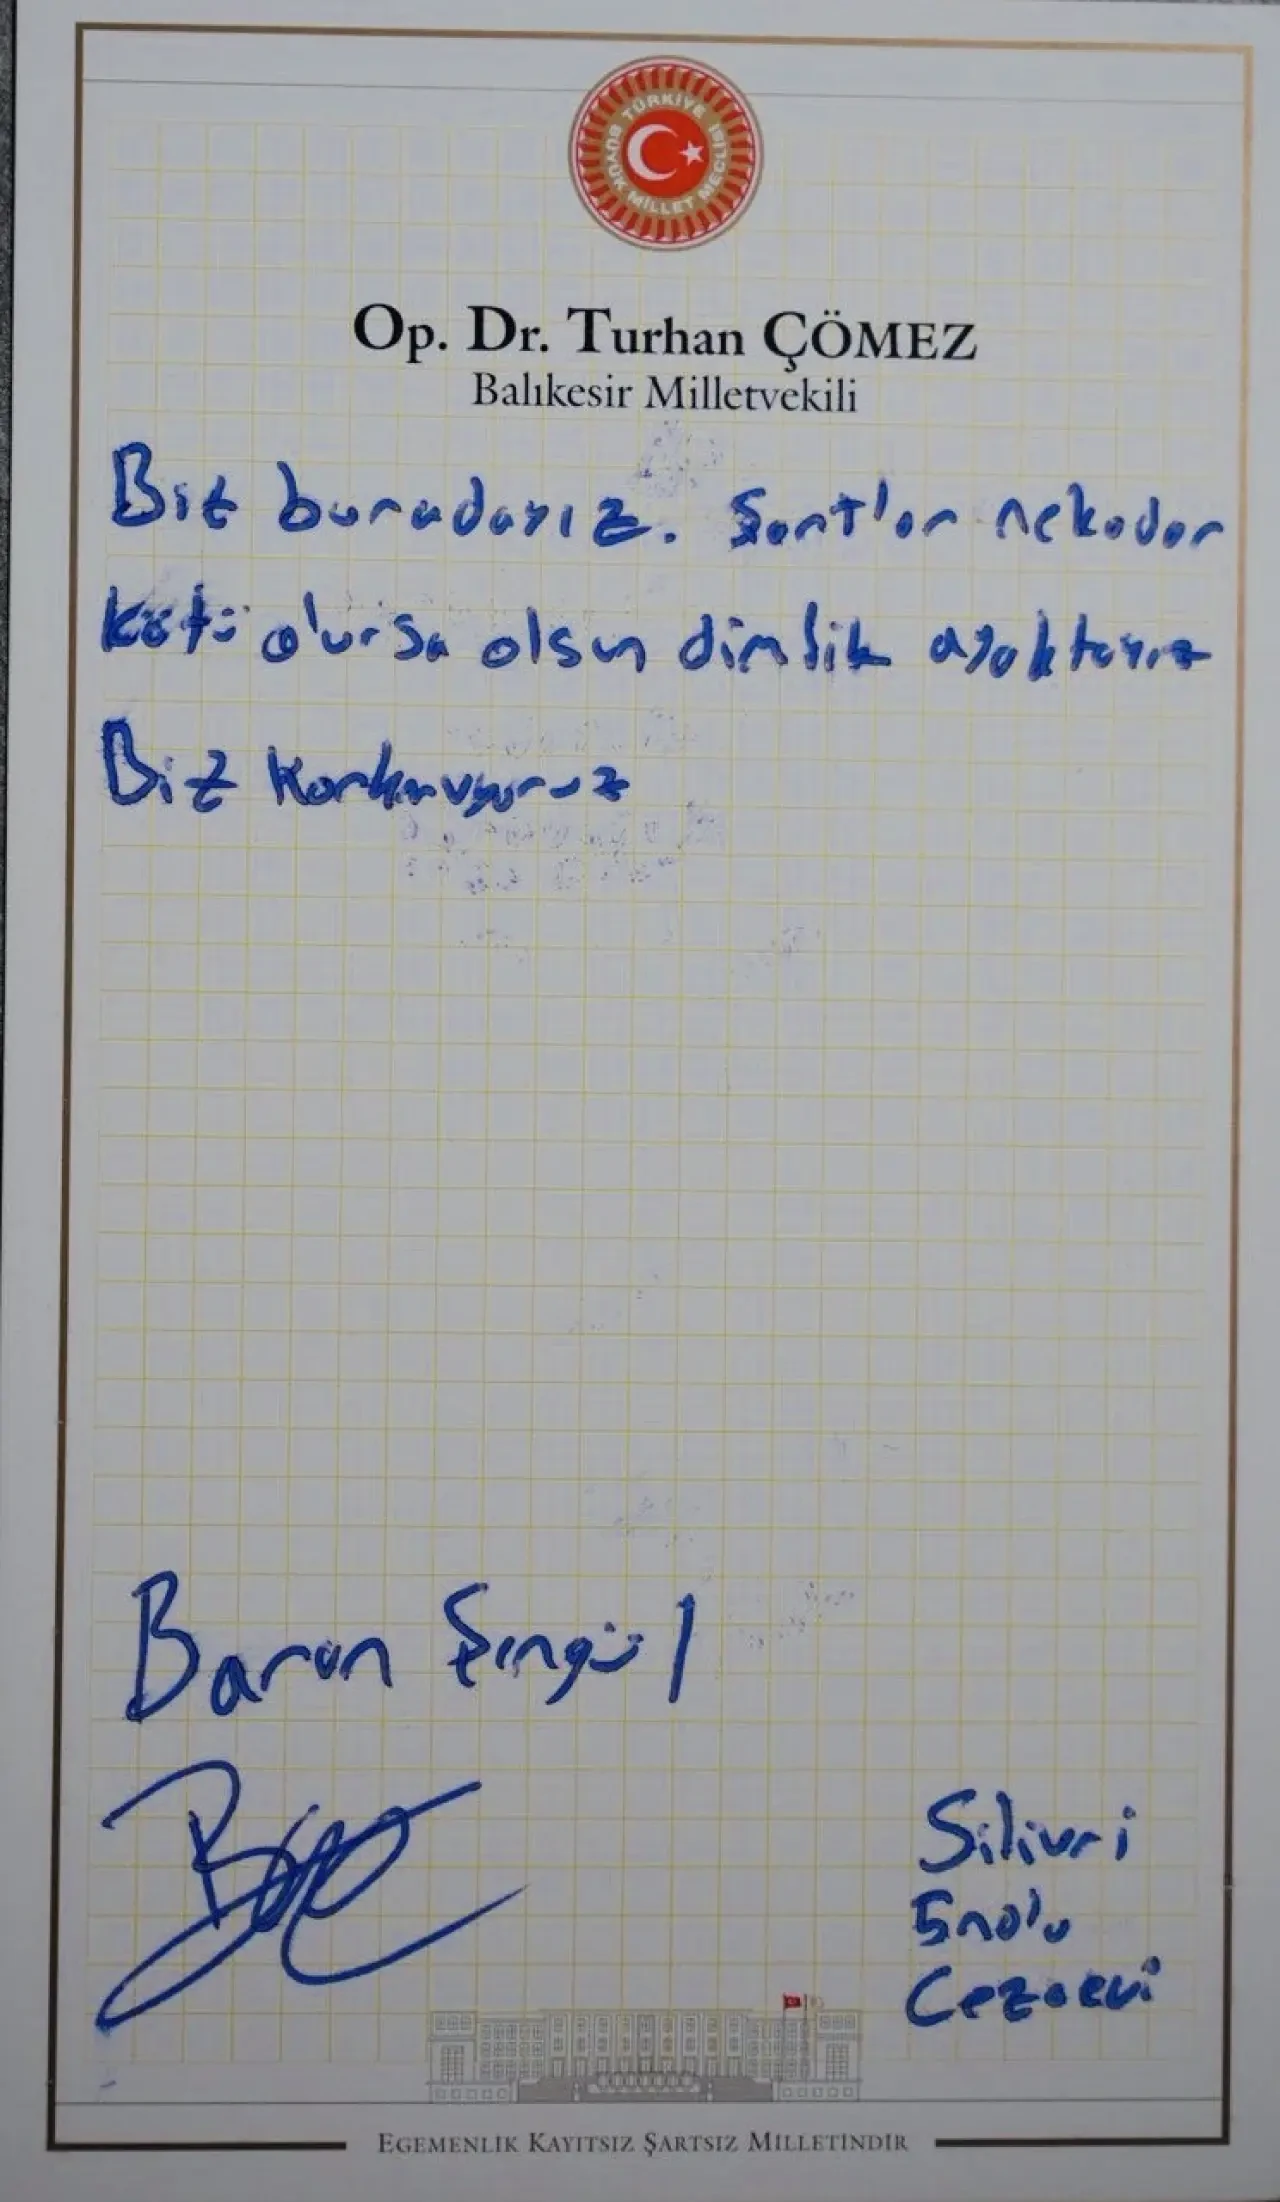 TÜRKİYE BÜYÜK MİLLET MECLİSİ
Op. Dr. Turhan ÇÖMEZ
Balıkesir Milletvekili
Biz buradayız. Şartlar nekadar
kötü olursa olsun dimdik ayaktayız
Biz Korkmuyoruz
Baran Şıngül
Silivri
5nolu
Cezaevi
EGEMENLİK KAYITSIZ ŞARTSIZ MİLLETİNDİR